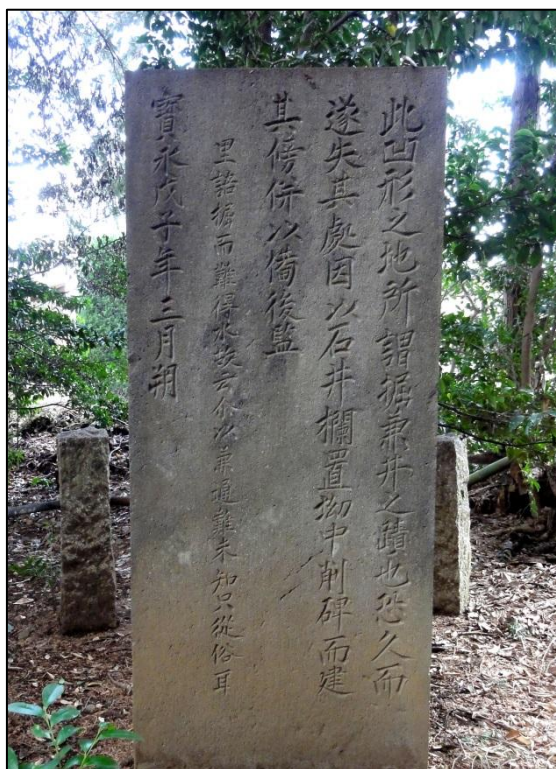 此凹形之地所謂掘兼井之蹟也恐久而
遂失其處因以石井欄置坳中削碑而建
其傍併以備後監
里諺掘而難得水故云尓以兼通難未知只從俗耳
寳永戊子年三月朔